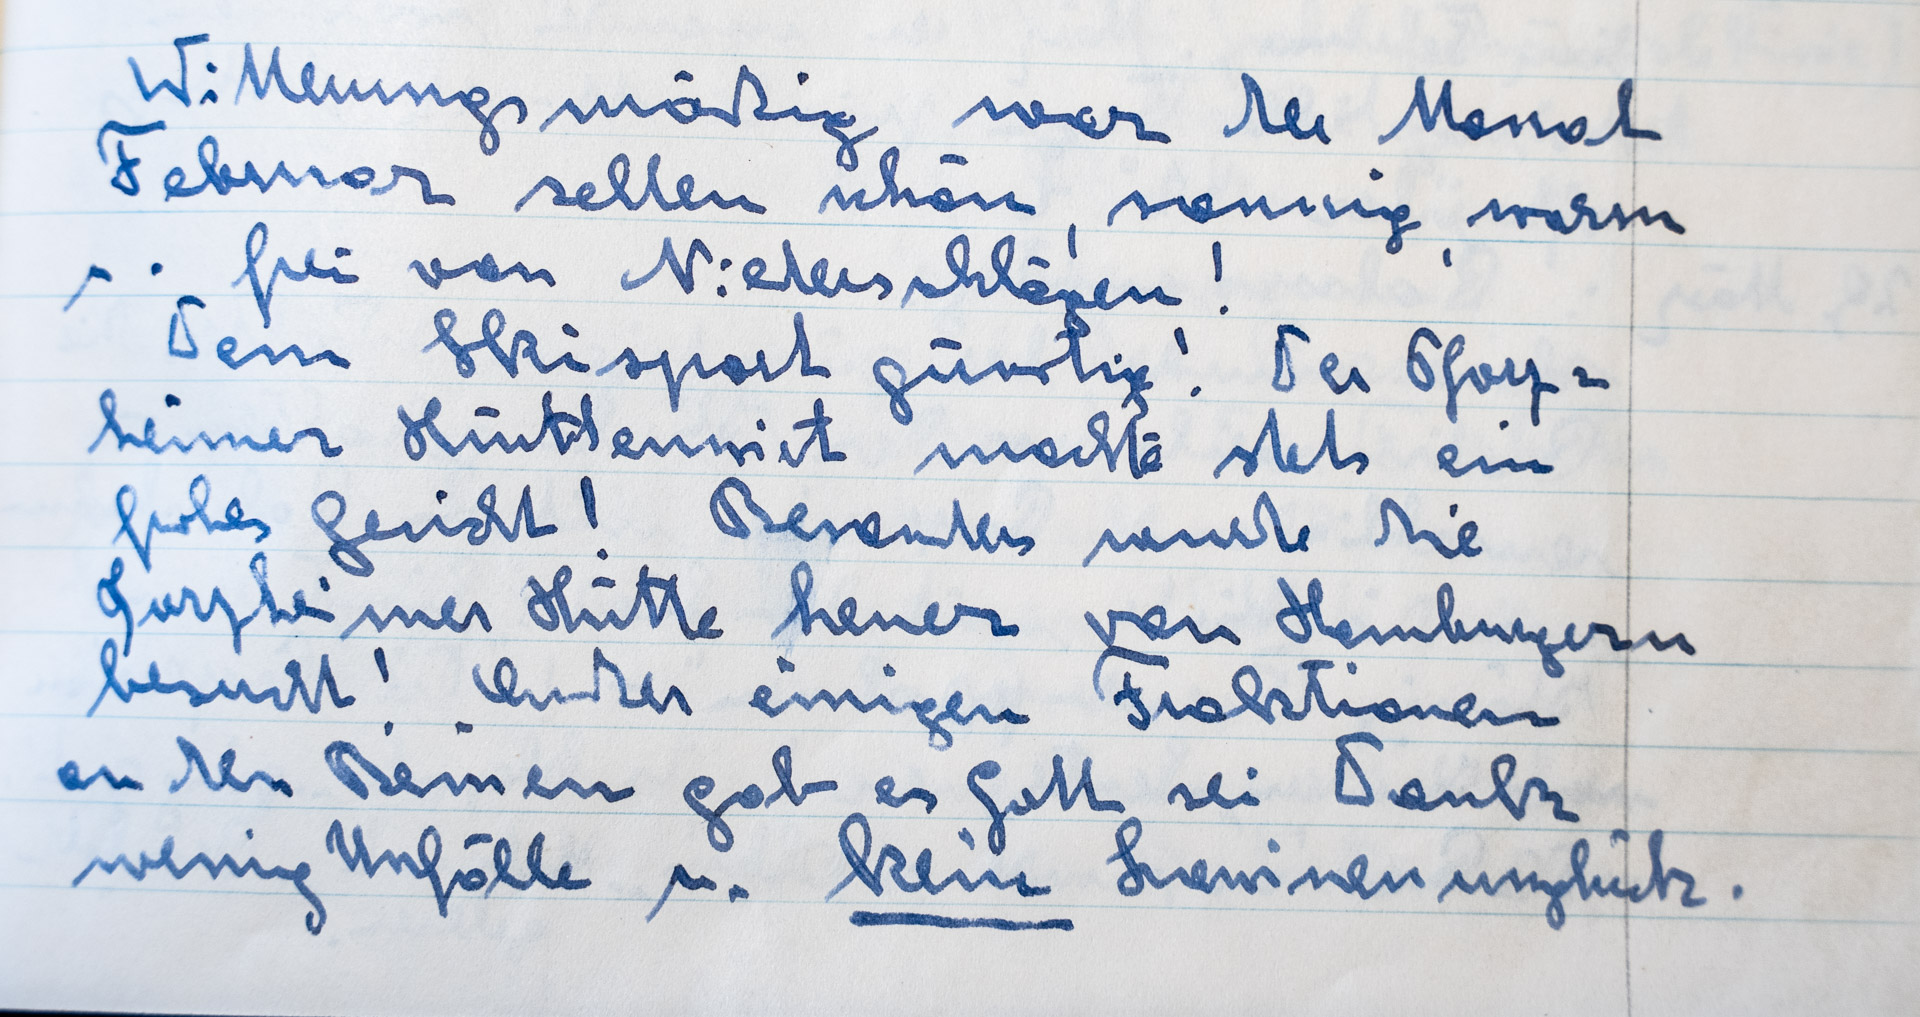 Witterungsmäßig war der Monat
Februar selten schön, sonnig, warm
u. frei von Niederschlägen!
Dem Skisport günstig! Der Pforz=
heimer Hüttenwirt machte stets ein
frohes Gesicht! Besonders wurde die
Pforzheimer Hütte heuer von Hamburgern
besucht! Außer einigen Fraktionen
an den Beinen gab es Gott sei Dank
wenig Unfälle u. kein Lawinenunglück.